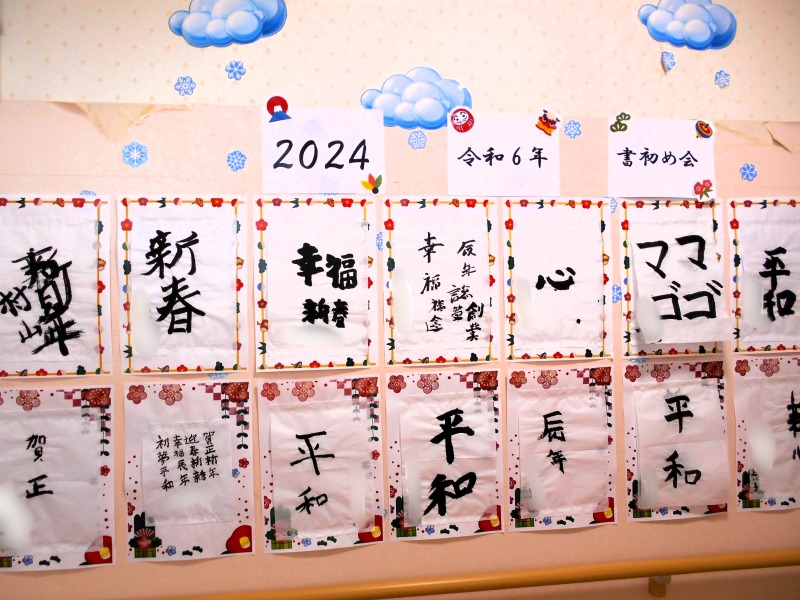 2024
令和6年
書初め会
新春
幸福
新春
辰年
誌
創業
幸福
心
ママ
ゴゴ
平和
賀正
賀正新年
迎春新韓
幸福辰年
初夢平和
平和
平和
辰年
平和